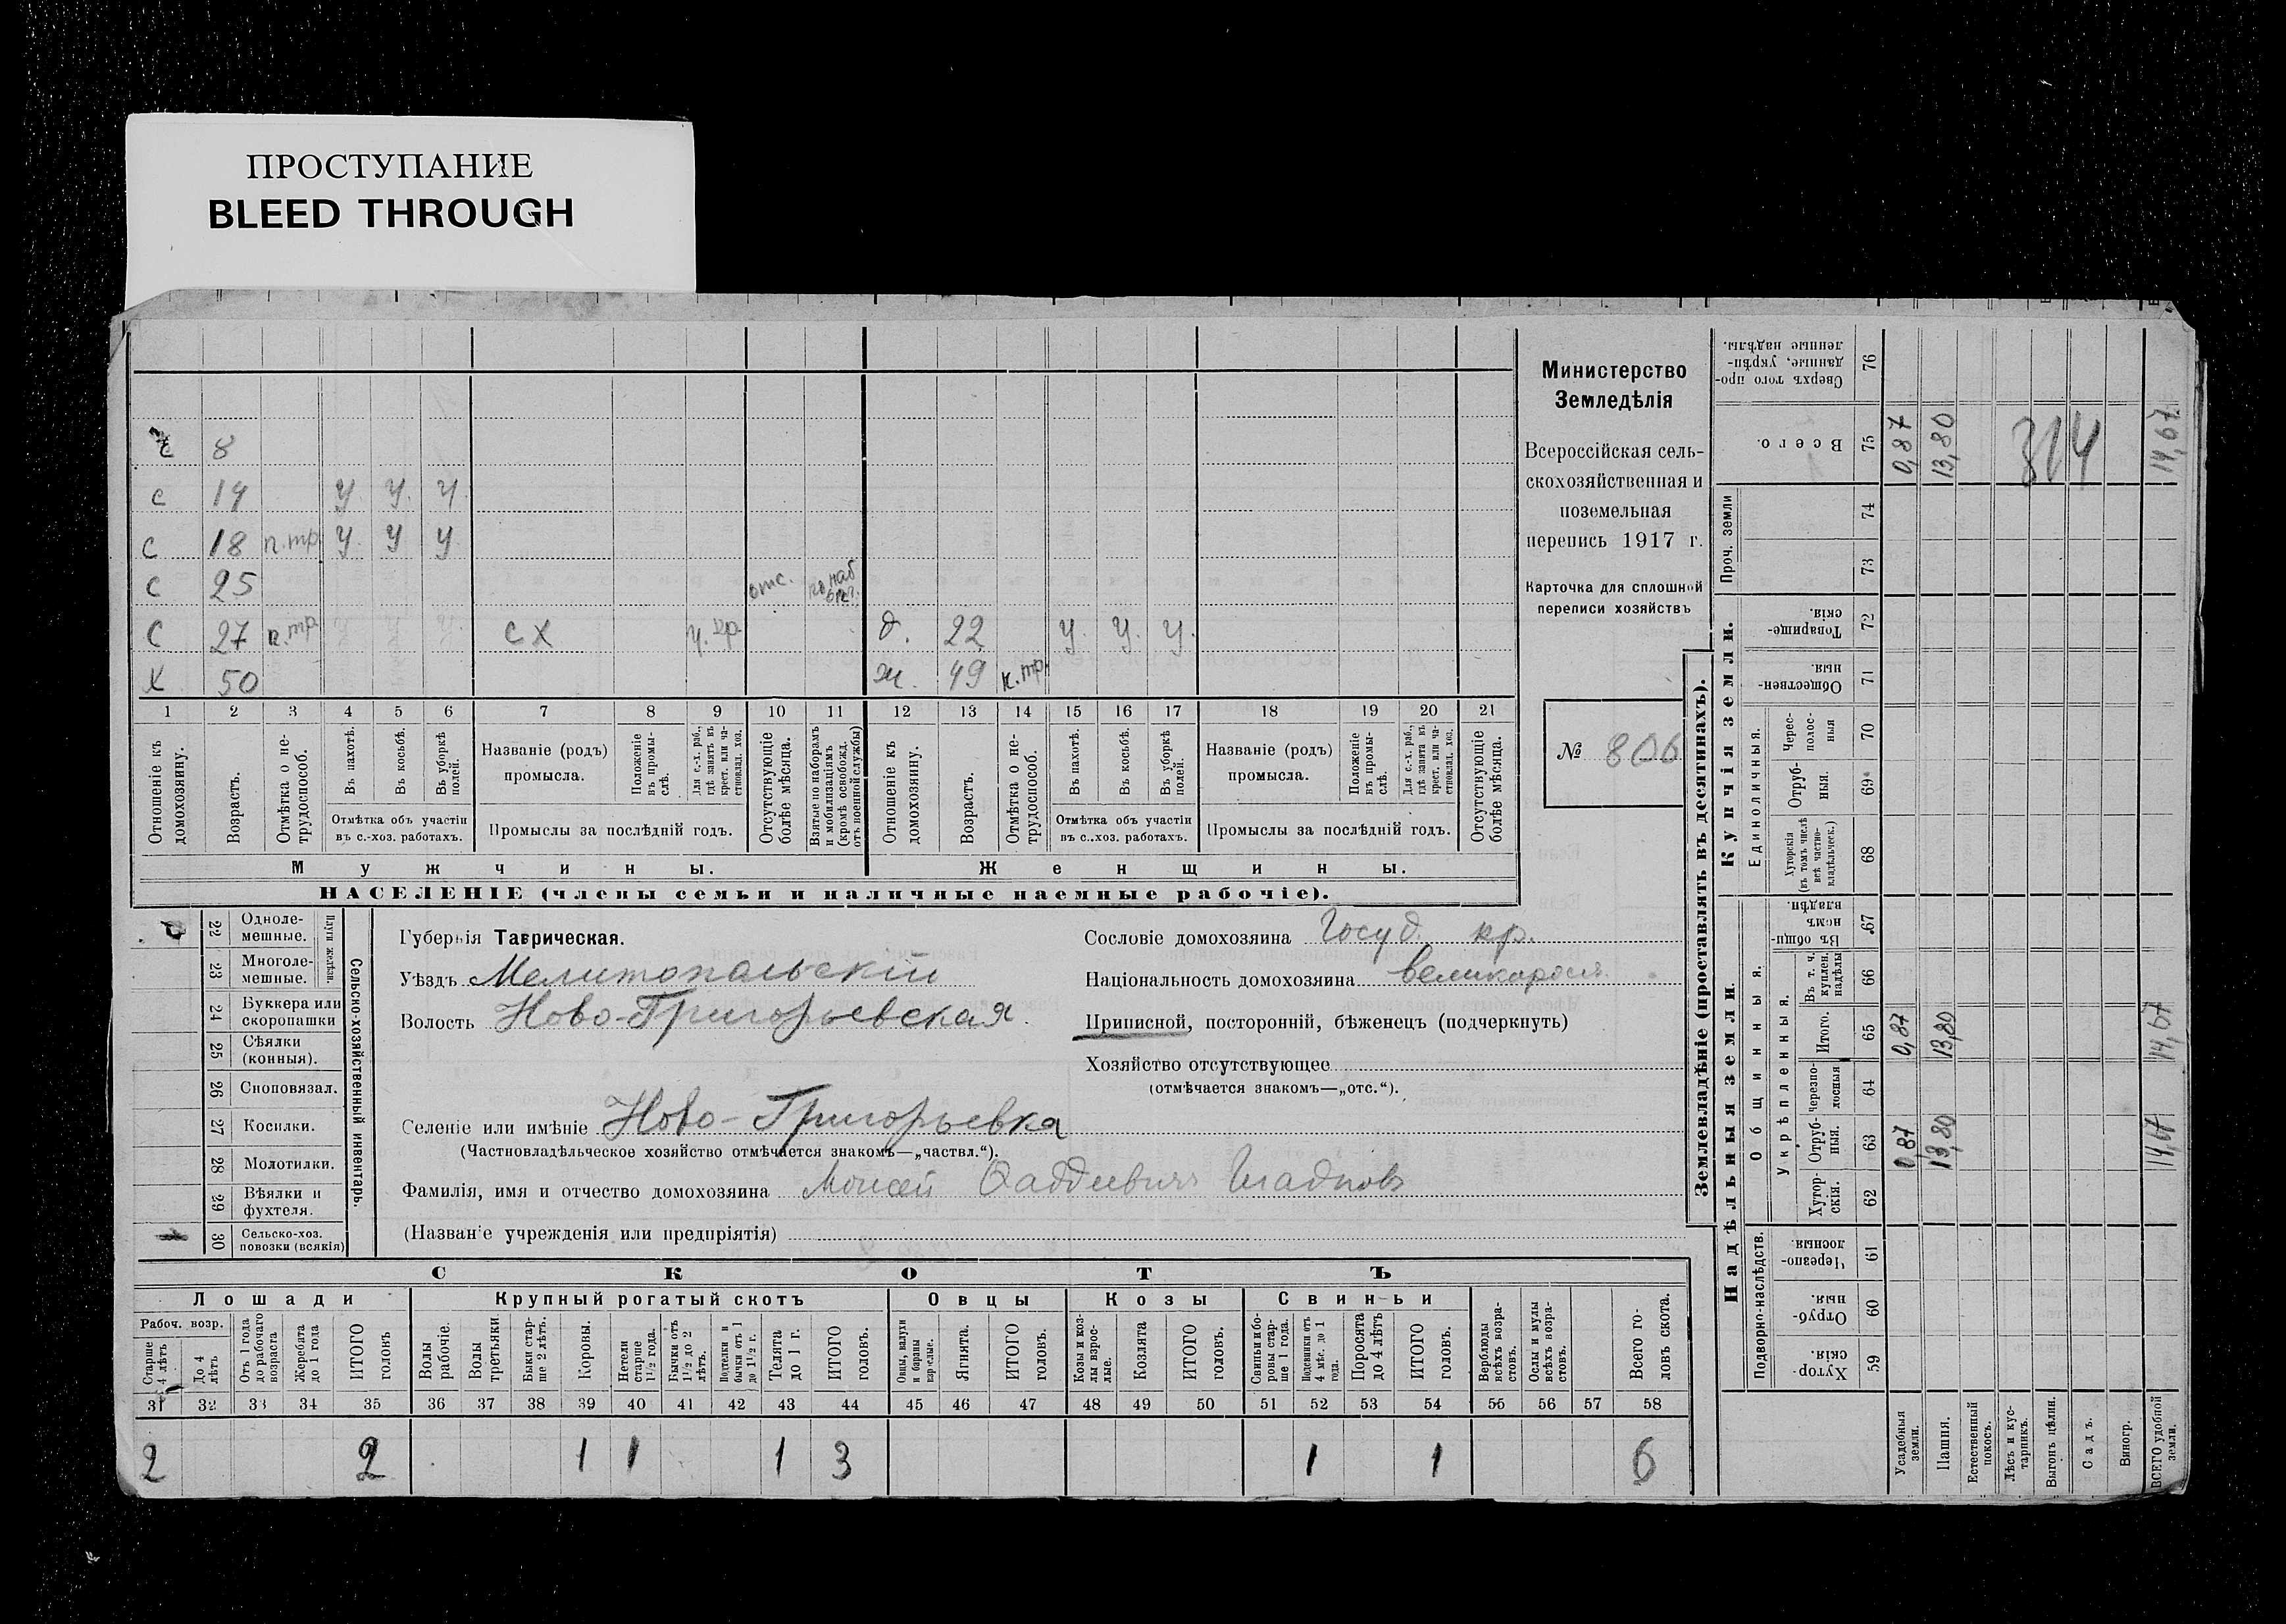 ПРОСТУПАНИЕ
BLEED THROUGH
8
с 14 у. у. у.
с 18 п.тр. у у у
с 25 отс.
с 27 п.тр. у у у. сх ч. кр. д. 22 у. у. у.
х 50 ж. 49 п.тр.
1 2 3 4 5 6 7 8 9 10 11 12 13 14 15 16 17 18 19 20 21
Отношеніе къ домохозяину.
Возрастъ.
Отмѣтка о не-
трудоспособ.
Въ пахотѣ.
Въ косьбѣ.
Въ уборкѣ
полей.
Отмѣтка объ участіи
въ с.-хоз. работахъ.
Названіе (родъ)
промысла.
Положеніе
въ промы-
слѣ.
Для с.-х. раб.,
гдѣ занятъ въ
крест. или ча-
стновлад. хоз.
Промыслы за послѣдній годъ.
Отсутствующіе
болѣе мѣсяца.
Взятые по наборамъ
и мобилизаціямъ
(кромѣ освобожд.
отъ военной службы)
Отношеніе къ
домохозяину.
Возрастъ.
Отмѣтка о не-
трудоспособ.
Въ пахотѣ.
Въ косьбѣ.
Въ уборкѣ
полей.
Отмѣтка объ участіи
въ с..хоз. работахъ.
Названіе (родъ)
промысла.
Положеніе
въ промы-
слѣ.
Для с.-х. раб.,
гдѣ занята въ
крест. или ча-
стновлад. хоз.
Промыслы за послѣдній годъ.
Отсутствующіе
болѣе мѣсяца.
Мужчины.
Женщины.
НАСЕЛЕНІЕ (члены семьи и наличные наемные рабочіе).
Министерство
Земледѣлія
Всероссійская сель-
скохозяйственная и
поземельная
перепись 1917 г.
Карточка для сплошной
переписи хозяйствъ
№ 806
22 Одноле-
мешные.
23 Многоле-
мешные.
Плуги желѣзн.
24 Буккера или
скоропашки
25 Сѣялки
(конныя).
26 Сноповязал.
27 Косилки.
28 Молотилки.
29 Вѣялки и
фухтеля.
30 Сельско-хоз.
повозки (всякія)
Сельско-хозяйственный инвентарь.
Губернія Таврическая.
Уѣздъ Мелитопольскій
Волость Ново-Григорьевская
Селеніе или имѣніе Ново-Григорьевка
(Частновладѣльческое хозяйство отмѣчается знакомъ—„частвл.“).
Фамилія, имя и отчество домохозяина Моисей Фаддеевичъ
(Названіе учрежденія или предпріятія)
Сословіе домохозяина Госуд. кр.
Національность домохозяина великоросс.
Приписной, посторонній, бѣженецъ (подчеркнуть)
Хозяйство отсутствующее
(отмѣчается знакомъ—„отс.“).
СКОТЪ
Лошади
Крупный рогатый скотъ
Овцы
Козы
Свиньи
Рабоч. возр.
Старше
4 лѣтъ
До 4
лѣтъ
Отъ 1 года
до рабочаго
возраста
Жеребята
до 1 года
ИТОГО
головъ
Волы
рабочіе.
Волы
третьяки.
Быки стар-
ше 2 лѣтъ.
Коровы.
Нетели
старше
1½ года.
Бычки отъ
1½ до 2
лѣтъ.
Подтелки и
бычки отъ 1
до 1½ г.
Телята
до 1 г.
ИТОГО
головъ.
Овцы, валухи
и бараны
взрослые.
Ягнята.
ИТОГО
головъ.
Козы и коз-
лы взрос-
лые.
Козлята
ИТОГО
головъ.
Свиньи и бо-
ровы стар-
ше 1 года.
Подсвинки отъ
4 мѣс. до 1
года.
Поросята
до 4 лѣтъ
ИТОГО
головъ.
Верблюды
всѣхъ возра-
стовъ.
Ослы и мулы
всѣхъ возра-
стовъ.
Всего го-
ловъ скота.
31 32 33 34 35 36 37 38 39 40 41 42 43 44 45 46 47 48 49 50 51 52 53 54 55 56 57 58
2 2 1 1 1 3 1 1 6
Землевладѣніе (проставлять въ десятинахъ).
Купчія земли.
Надѣльныя земли.
Проч. земли
Единоличныя.
Общинныя.
Укрѣпленныя.
Подворно-наслѣдств.
Сверхъ того про-
данные, укрѣп-
ленные надѣлы. 76
Всего. 75 0,87 13,80 314 14,67
74
73
Товарище-
скія. 72
Обществен-
ныя. 71
Черес-
полос-
ныя 70
Отруб-
ныя. 69
Хуторскія
(въ томъ числѣ
всѣ частно-
владѣльческ.) 68
Въ общин-
номъ
владѣн. 67
Въ т. ч.
куплен.
надѣлы 66
Итого. 65 0,87 13,80 14,67
Черезпо-
лосныя 64
Отруб-
ныя. 63 0,87 13,80 14,67
Хутор-
скія. 62
Черезпо-
лосныя. 61
Отруб-
ныя. 60
Хутор-
скія. 59
Усадебныя
земли.
Пашня.
Естественный
покосъ.
Лѣсъ и кус-
тарникъ.
Выгонъ цѣлин.
Садъ.
Виногр.
ВСЕГО удобной
земли.